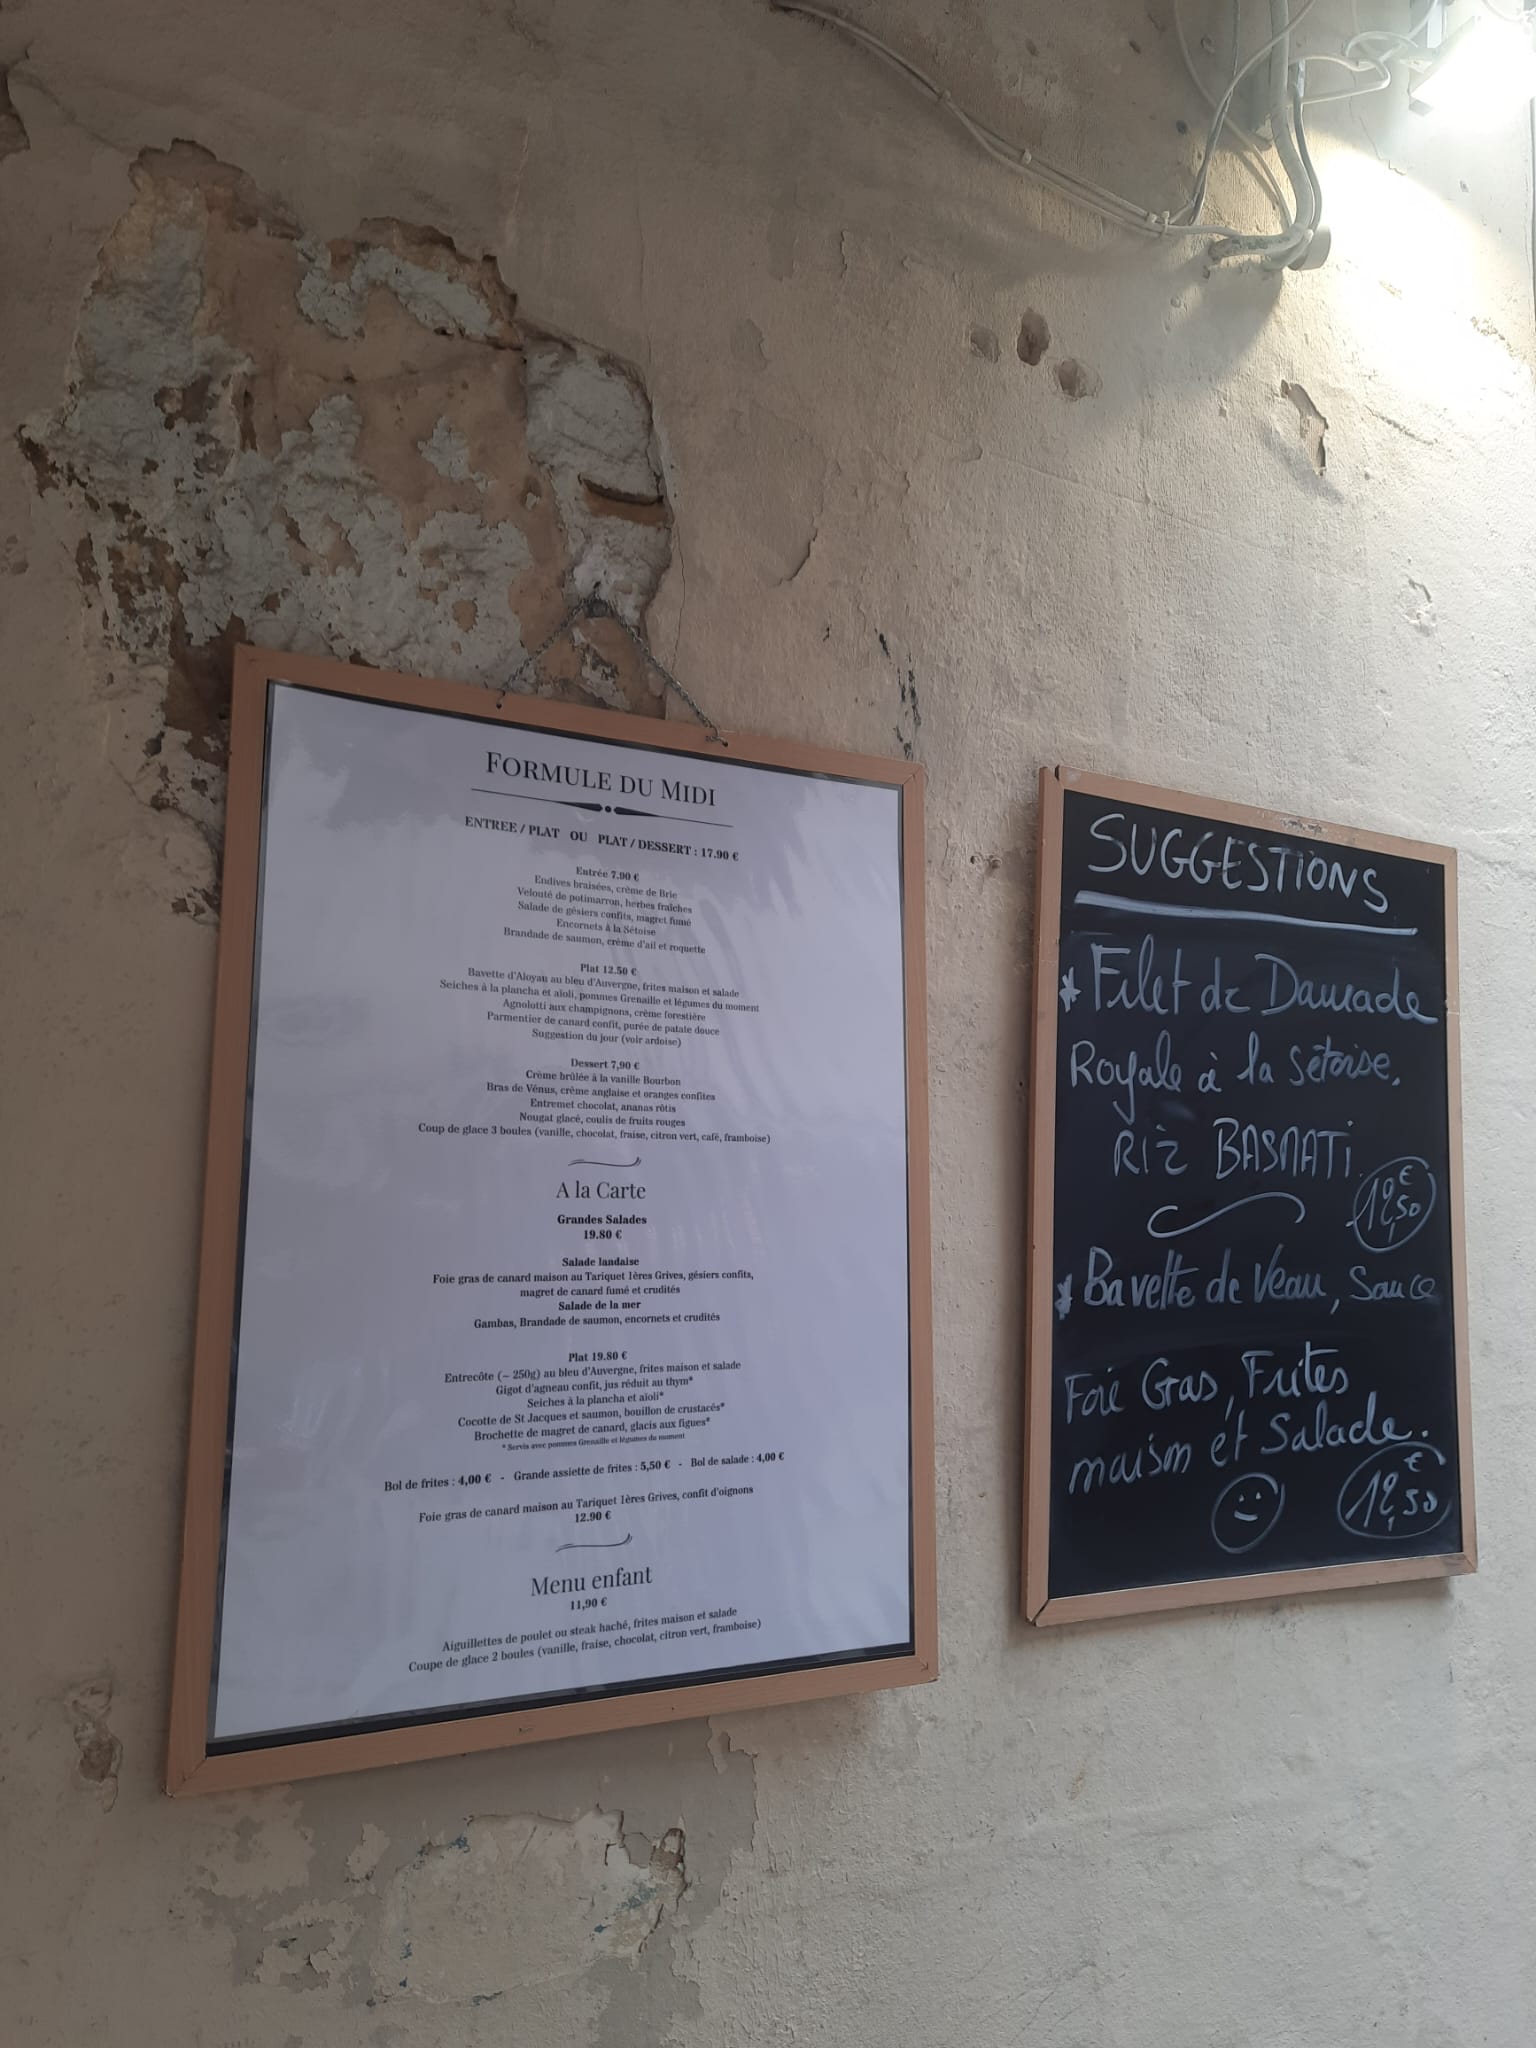 FORMULE DU MIDI
ENTREE / PLAT OU PLAT / DESSERT : 17.90 €
Entrée 7.90 €
Endives braisées, crème de Brie
Velouté de potimarron, herbes fraîches
Salade de gésiers confits, magret fumé
Encornets à la Sétoise
Brandade de saumon, crème d'ail et roquette
Plat 12.50 €
Bavette d'Aloyau au bleu d'Auvergne, frites maison et salade
Seiches à la plancha et aïoli, pommes Grenaille et légumes du moment
Agnolotti aux champignons, crème forestière
Parmentier de canard confit, purée de patate douce
Suggestion du jour (voir ardoise)
Dessert 7,90 €
Crème brûlée à la vanille Bourbon
Bras de Vénus, crème anglaise et oranges confites
Entremet chocolat, ananas rôtis
Nougat glacé, coulis de fruits rouges
Coup de glace 3 boules (vanille, chocolat, fraise, citron vert, café, framboise)
A la Carte
Grandes Salades
19.80 €
Salade landaise
Foie gras de canard maison au Tariquet 1ères Grives, gésiers confits,
magret de canard fumé et crudités
Salade de la mer
Gambas, Brandade de saumon, encornets et crudités
Plat 19.80 €
Entrecôte (~ 250g) au bleu d'Auvergne, frites maison et salade
Gigot d'agneau confit, jus réduit au thym*
Seiches à la plancha et aïoli*
Cocotte de St Jacques et saumon, bouillon de crustacés*
Brochette de magret de canard, glacis aux figues*
* Servis avec pommes Grenaille et légumes du moment
Bol de frites : 4,00 € - Grande assiette de frites : 5,50 € - Bol de salade : 4,00 €
Foie gras de canard maison au Tariquet 1ères Grives, confit d'oignons
12.90 €
Menu enfant
11,90 €
Aiguillettes de poulet ou steak haché, frites maison et salade
Coupe de glace 2 boules (vanille, fraise, chocolat, citron vert, framboise)
SUGGESTIONS
* Filet de Daurade
Royale à la Sétoise.
RIZ BASMATI.
12,50 €
* Bavette de Veau, Sauce
Foie Gras, Frites
maison et Salade.
12,50 €